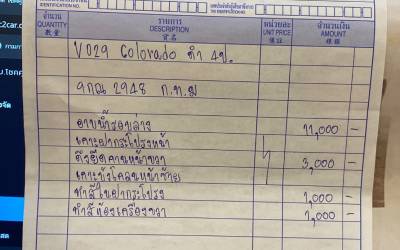 IDENTIFICATION NO.
จำนวน QUANTITY 數量
รายการ DESCRIPTION 品名
หน่วยละ UNIT PRICE 單位
จำนวนเงิน AMOUNT 銀碼
V029 Colorado ดำ 4ป.
9กฌ 2948 ก.ท.ม
อาบน้ำรอบล่าง 11,000 -
เคาะฝากระโปรงหน้า
ดึงยึดคานหน้าขวา 3,000 -
เคาะบังโคลนหน้าซ้าย
ทำสีในฝากระโปรง 1,000 -
ทำสีห้องเครื่องขวา 1,000 -